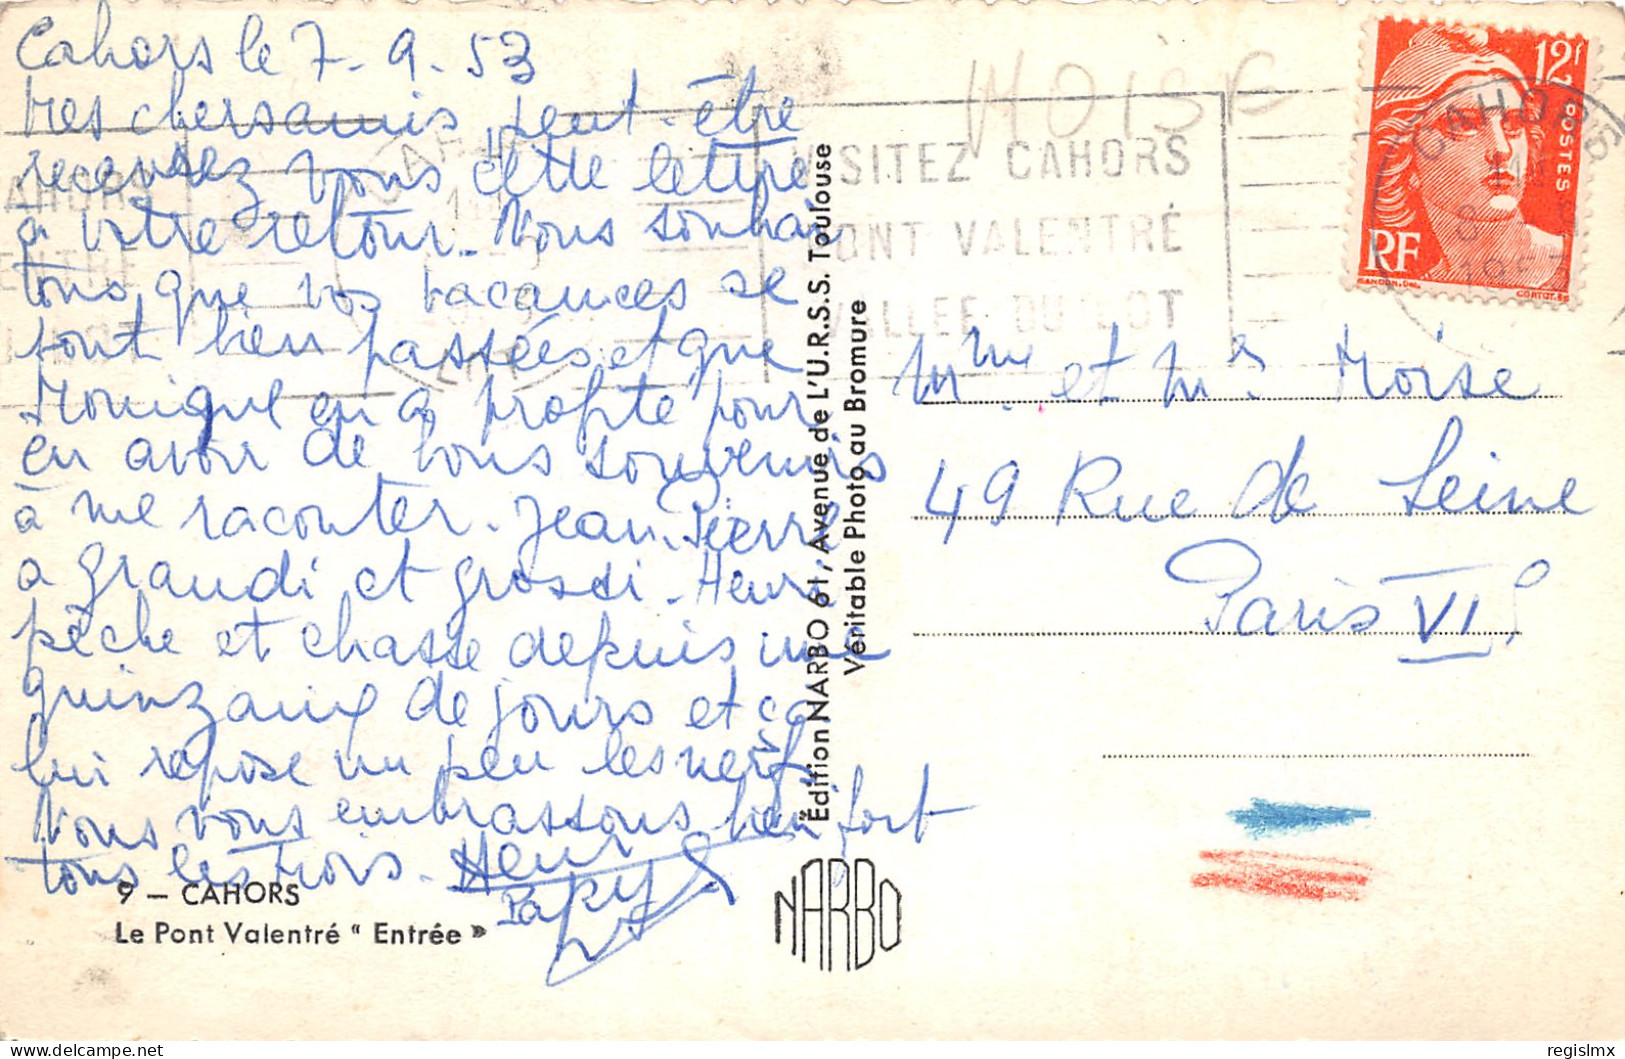 Cahors le 7-9-53
tres chers amis, peut-être
recevrez vous cette lettre
à votre retour. Nous souhai
tons que vos vacances se
sont bien passées et que
Monique en a profité pour
en avoir de bons souvenirs
à me raconter. Jean Pierre
a grandi et grossi. Henri
pêche et chasse depuis une
quinzaine de jours et ça
lui repose un peu les nerfs
Nous vous embrassons bien fort
tous les trois. Henri
Papy
9 — CAHORS
Le Pont Valentré “ Entrée ”
Édition NARBO 61, Avenue de L'U.R.S.S. Toulouse
Véritable Photo au Bromure
NARBO
MOISE
VISITEZ CAHORS
PONT VALENTRÉ
VALLEE DU LOT
12F
POSTES
RF
GANDON. Del.
CORTOT. Sc
CAHORS
Mme et Mr. Moïse
49 Rue de Seine
Paris VI e
regislmx